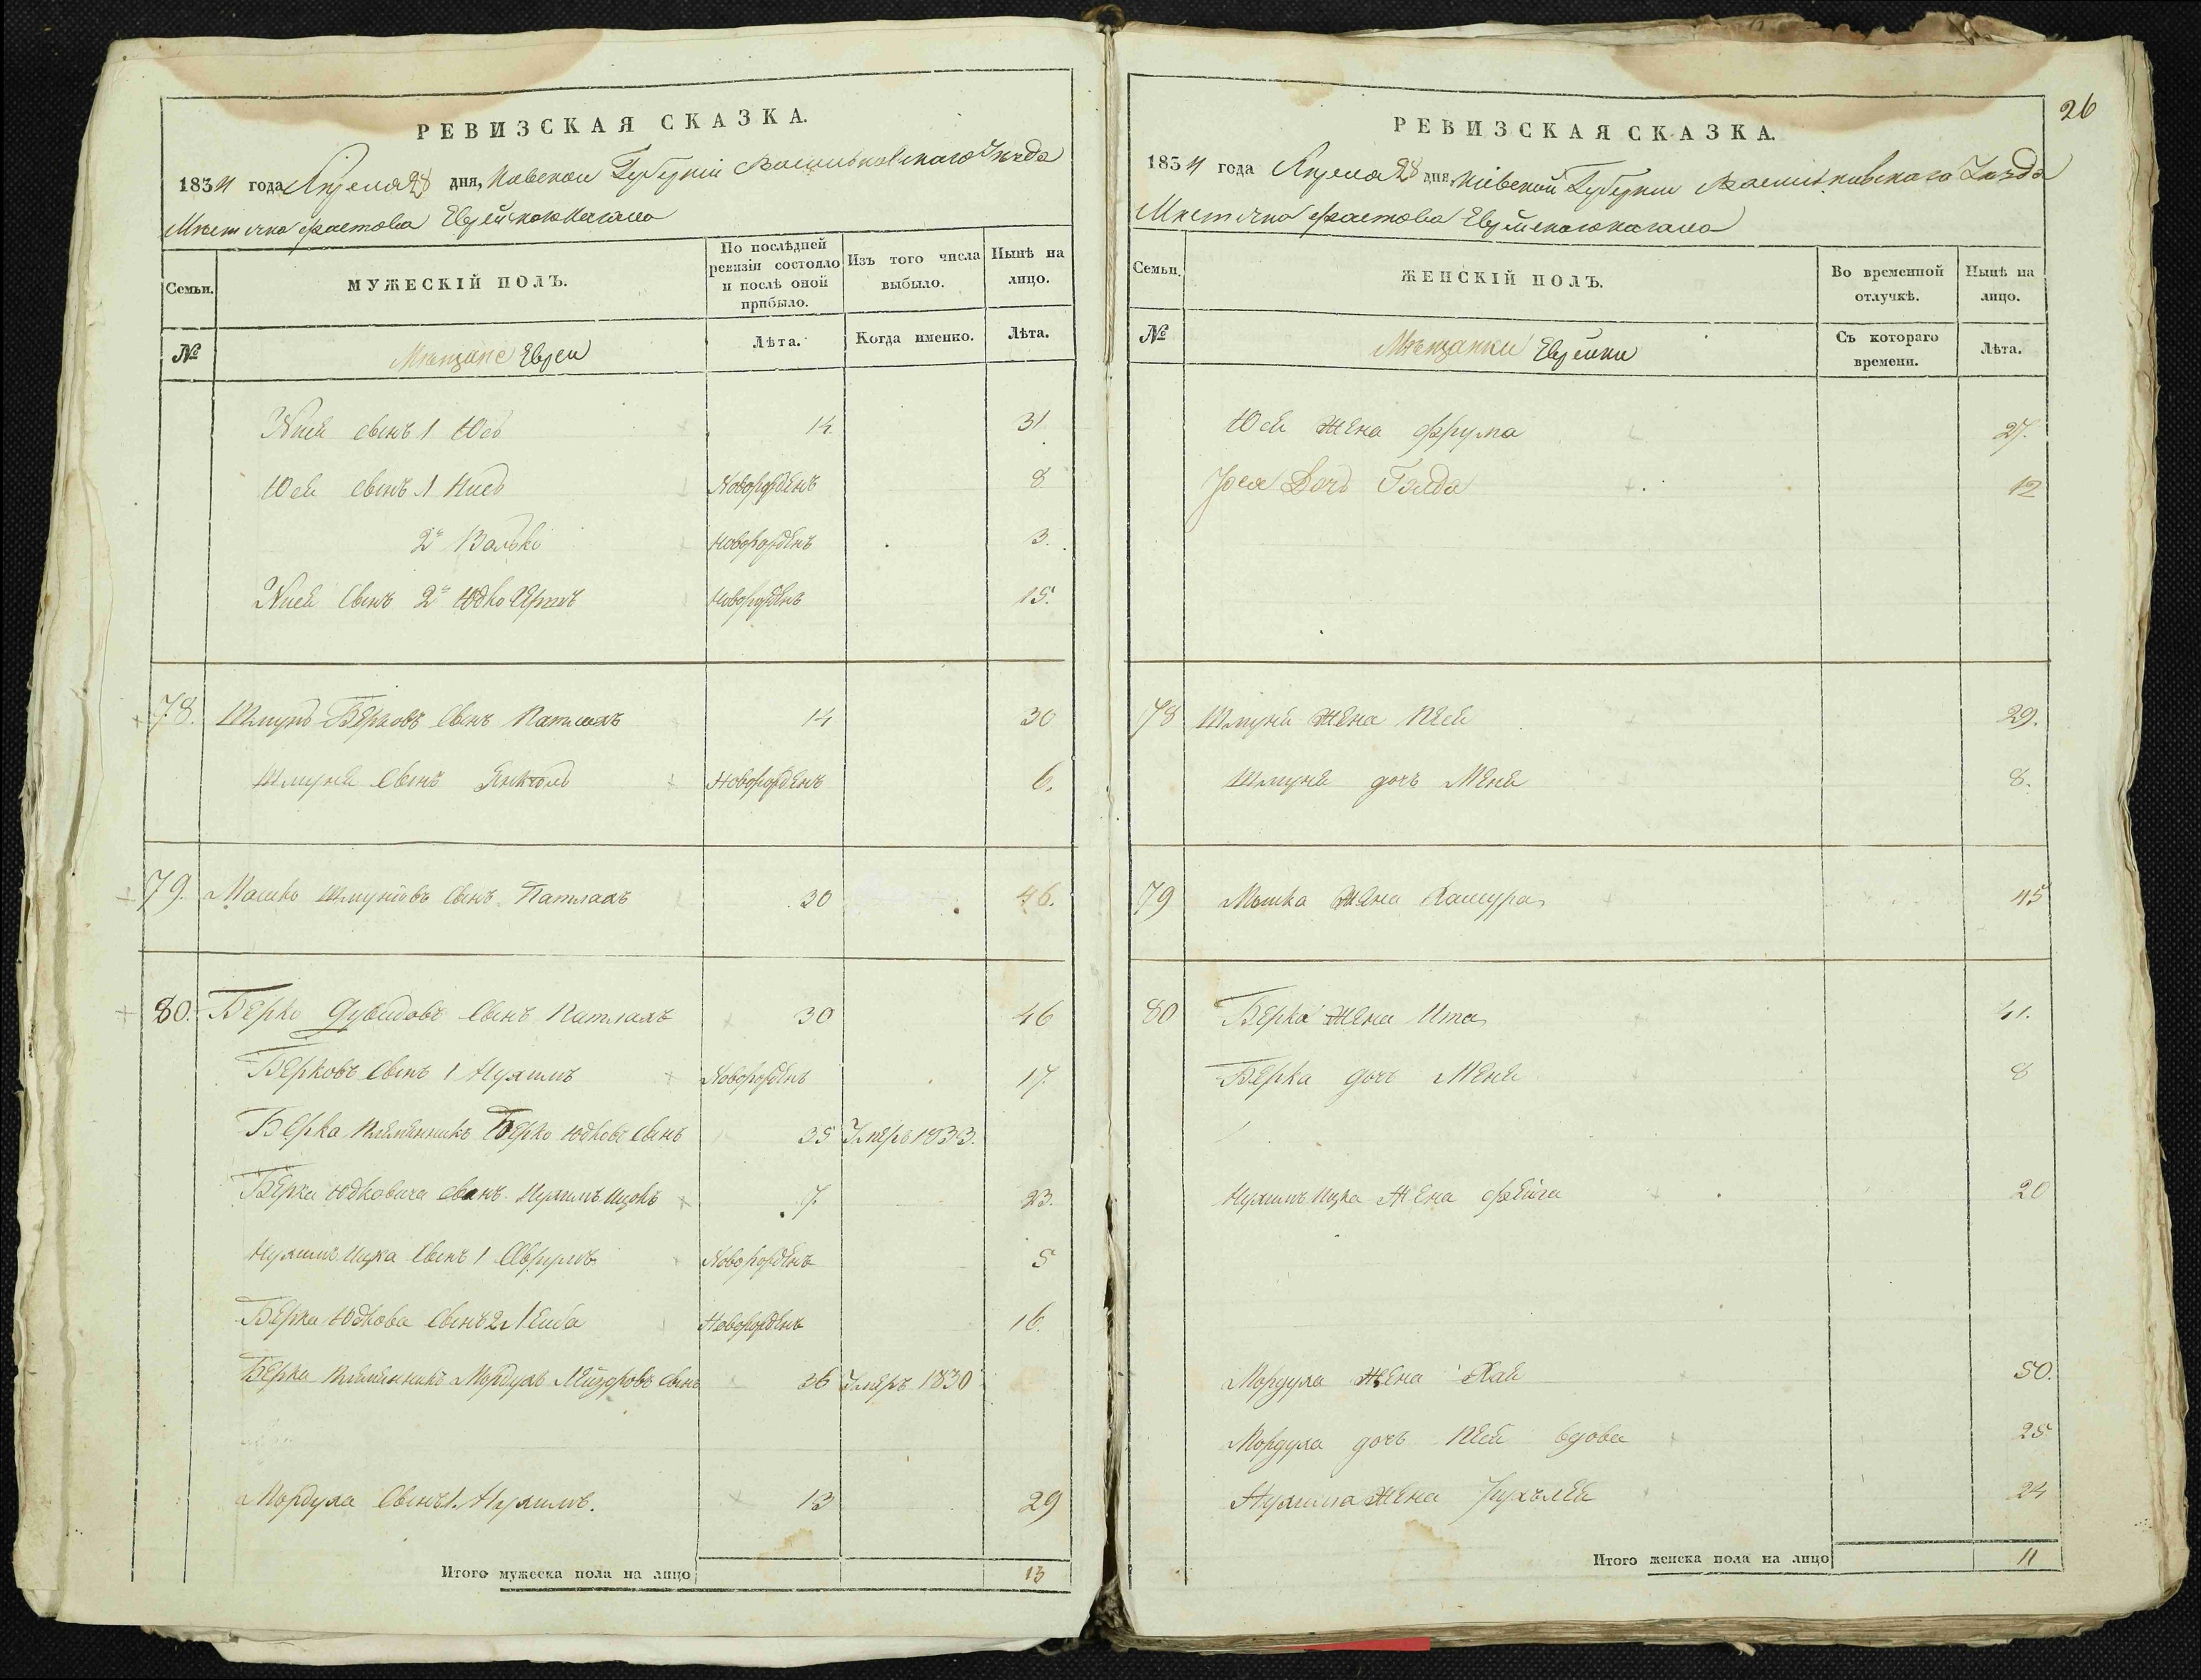 РЕВИЗСКАЯ СКАЗКА.
1834 года Апреля 28 дня, Киевской Губерніи Васильковскаго Уезда
Местечка Фастова Еврейского кагала
Семьи.
МУЖЕСКІЙ ПОЛЪ.
По послѣдней ревизіи состояло и послѣ оной прибыло.
Изъ того числа выбыло.
Нынѣ на лицо.
№
Мещане Евреи
Лѣта.
Когда именно.
Лѣта.
сынъ 1 Юсь 14 31
Юся сынъ 1 Новорожденъ 8
2й Новорожденъ 3.
сынъ 2й Юдко Новорожденъ 15.
78. Шмунь Берковъ сынъ Патлахъ 14 30
Шмуня сынъ Новорожденъ 6.
79. Мошко сынъ Патлахъ 30 46.
80. Берко Дувидовъ сынъ Патлахъ 30 46
Берковъ сынъ 1 Нухимъ Новорожденъ 17
Берка племянникъ Берко Юдковъ сынъ 35 Умеръ 1833.
Берка Юдковича сынъ Нухимъ Ицокъ 7. 23.
Нухимъ Ицка сынъ 1 Аврумъ Новорожденъ 5
Берка Юдкова сынъ 2й Лейба Новорожденъ 16.
Берка племянникъ Мордухъ Лейзеровъ сынъ 36 Умеръ 1830
Мордуха сынъ 1. Нухимъ. 13 29
Итого мужеска пола на лицо 13
26
РЕВИЗСКАЯ СКАЗКА.
1834 года Апреля 28 дня Кіевской Губерніи Васильковскаго Уезда
Местечка Фастова Еврейского кагала
Семьи.
ЖЕНСКІЙ ПОЛЪ.
Во временной отлучкѣ.
Нынѣ на лицо.
№
Мещанки Еврейки
Съ котораго времени.
Лѣта.
Юся жена Фрума 27.
Дочь Голда 12
78 Шмуня жена Песя 29.
Шмуня дочь Меня 8.
79 Мошка жена 45
80 Берка жена Ита 41.
Берка дочь Меня 8
Нухимъ Ицка жена Фейга 20
Мордуха жена Хая 50.
Мордуха дочь Песя вдова 25
Нухима жена Рухля 24
Итого женска пола на лицо 11